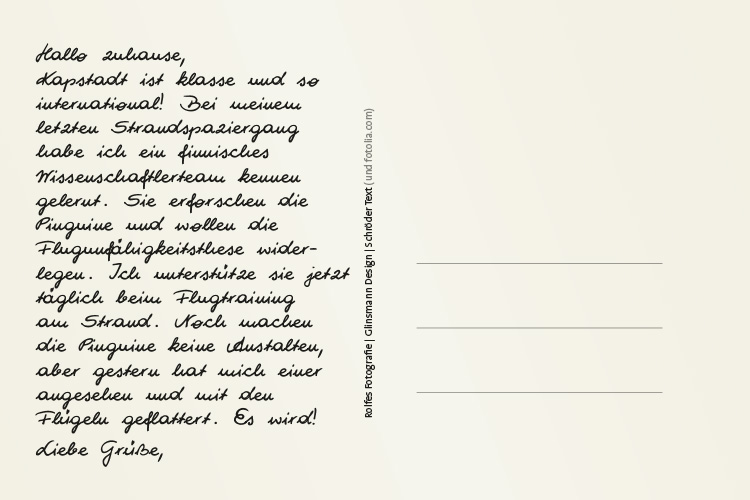 Hallo zuhause,
Kapstadt ist klasse und so
international! Bei meinem
letzten Strandspaziergang
habe ich ein finnisches
Wissenschaftlerteam kennen
gelernt. Sie erforschen die
Pinguine und wollen die
Flugunfähigkeitsthese wider-
legen. Ich unterstütze sie jetzt
täglich beim Flugtraining
am Strand. Noch machen
die Pinguine keine Anstalten,
aber gestern hat mich einer
angesehen und mit den
Flügeln geflattert. Es wird!
Liebe Grüße,
Rolfes Fotografie | Glinsmann Design | Schröder Text (und fotolia.com)